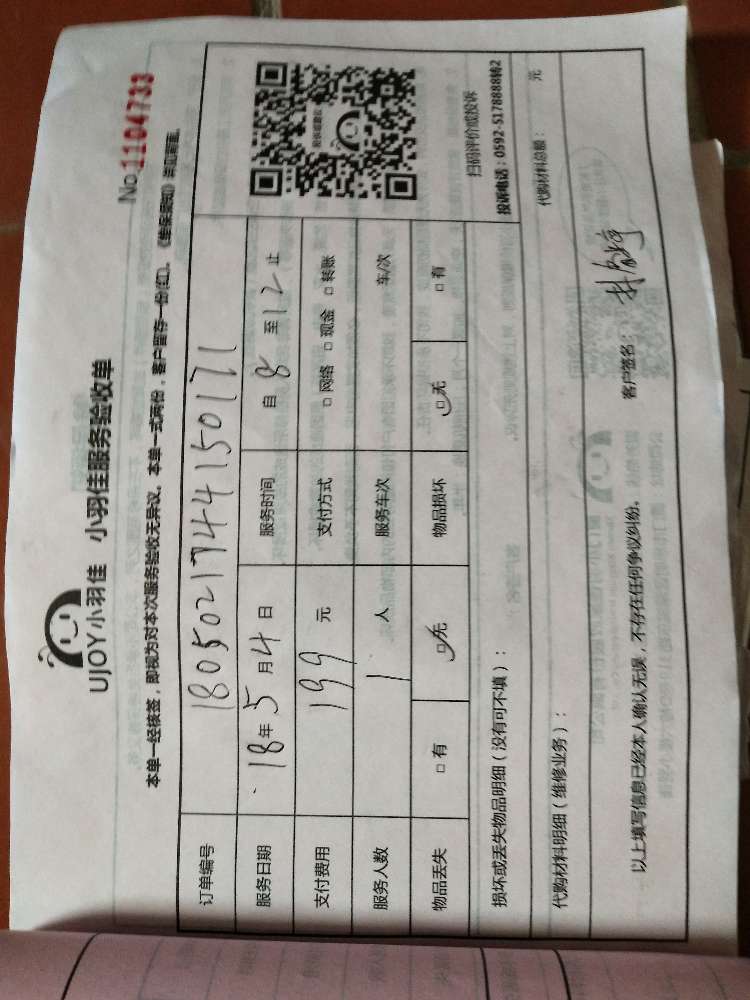 UJOY小羽佳 小羽佳服务验收单
No.1104733
本单一经核签，即视为对本次服务验收无异议。本单一式两份，客户留存一份(红)。《维保须知》详见背面。
订单编号 1805021744150171
服务日期 18年5月4日 服务时间 自8至12止
支付费用 199元 支付方式 □网络 □现金 □转账
服务人数 1人 服务车次 车/次
物品丢失 □有 □无 物品损坏 □无 □有
扫码评价或投诉
投诉电话：0592-5178888转2
损坏或丢失物品明细（没有可不填）：
代购材料明细（维修业务）： 代购材料总额： 元
以上填写信息已经本人确认无误，不存在任何争议纠纷。 客户签名：